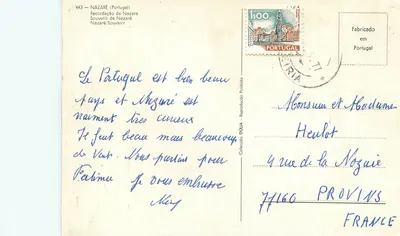 443 - NAZARÉ (Portugal)
Recordação da Nazaré
Souvenir de Nazaré
Nazaré Souvenir
Le Portugal est bien beau
pays et Nazaré est
vraiment très curieux
Il fait beau mais beaucoup
de Vent. Nous partons pour
Fatima Je vous embrasse
1$00
PORTUGAL
77
EIRIA
Fabricado
em
Portugal
Monsieur et Madame
Heulot
4 rue de la Nozaie
77160 PROVINS
FRANCE